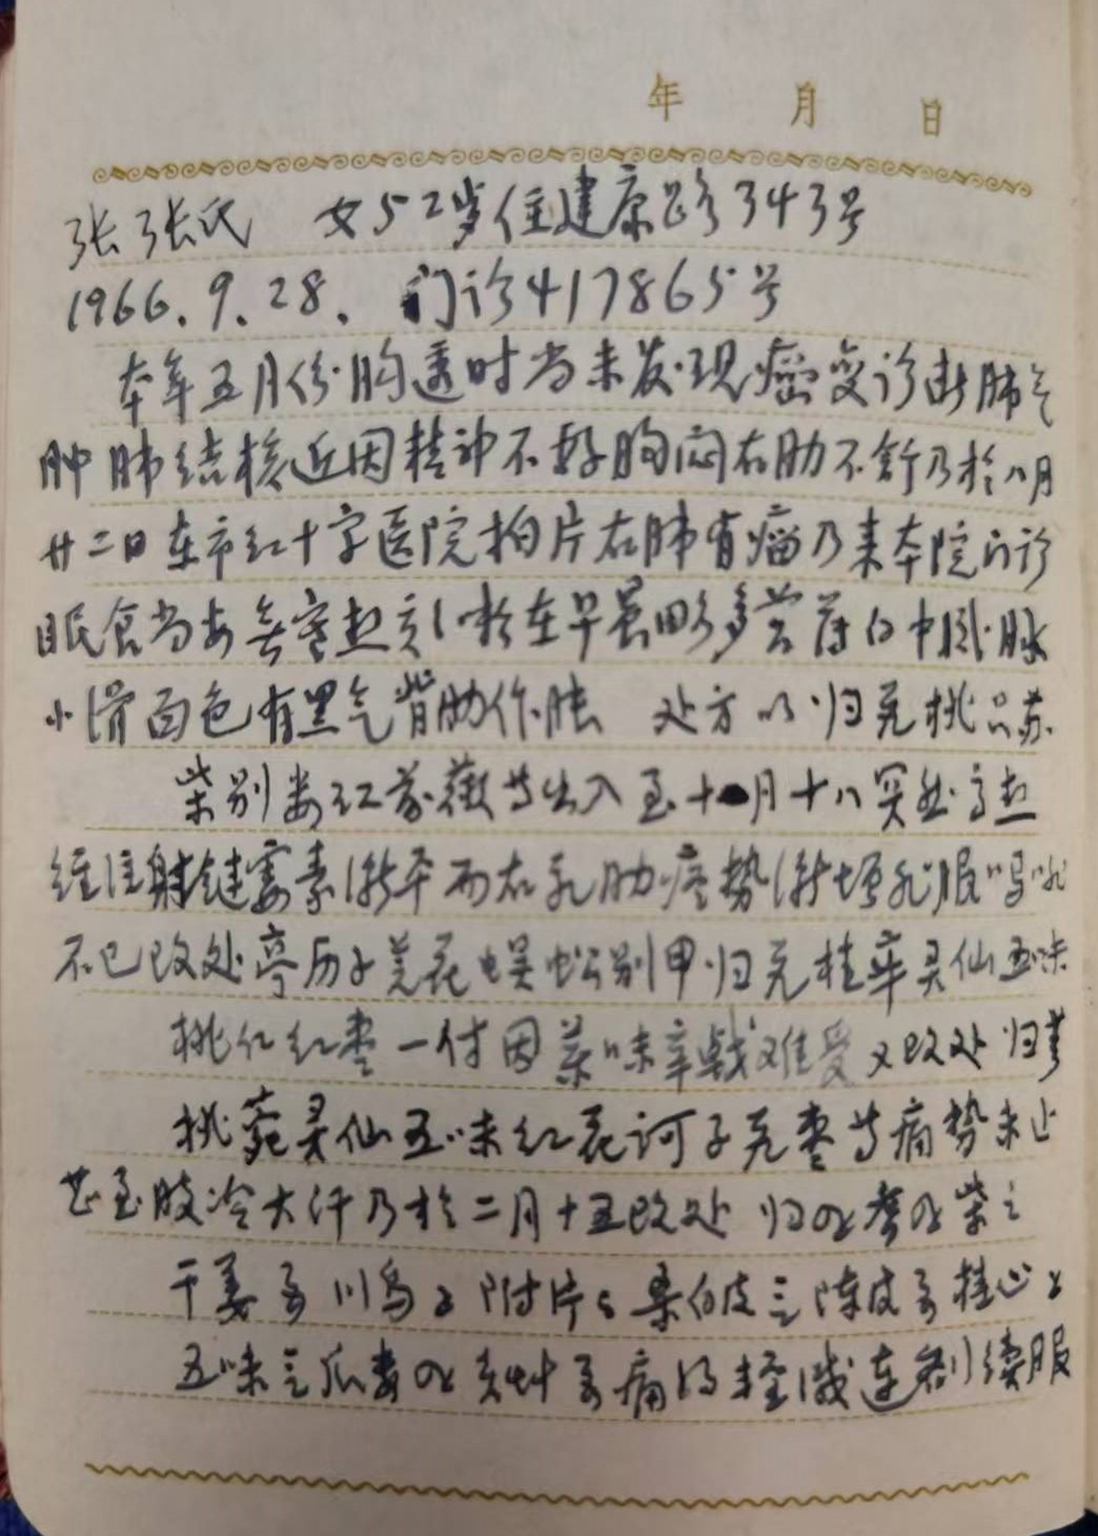 年 月 日
张张氏 女52岁住建康路343号
1966.9.28. 门诊417865号
本年五月份胸透时尚未发现癌变诊断肺气
肿肺结核近因精神不好胸闷右肋不舒乃於八月
廿二日在市红十字医院拍片右肺有瘤乃来本院门诊
眠食尚安 咳在早晨 多 苔薄白中 脉
小滑面色有黑气背肋作胀 处方以归芪桃 苏
柴别蒌红 薇等出入至十月十八突然高热
经注射链霉素渐平而右乳肋疼势渐增 服
不已改处葶历子芫花蜈蚣别甲归芪桂 灵仙五味
桃仁红枣一付因药味辛 难受又改处归
桃 灵仙五味红花诃子芪枣等痛势未止
甚至肢冷大汗乃於二月十五改处 归 柴
干姜 川乌 附片 桑白皮三陈皮 桂心
五味三瓜蒌 痛得轻减连剂续服